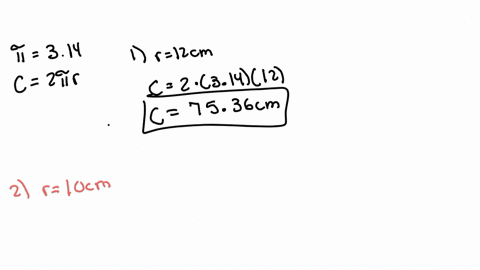 π = 3.14
C = 2πr
1) r=12cm
C = 2·(3.14)(12)
C = 75.36cm
2) r=10cm